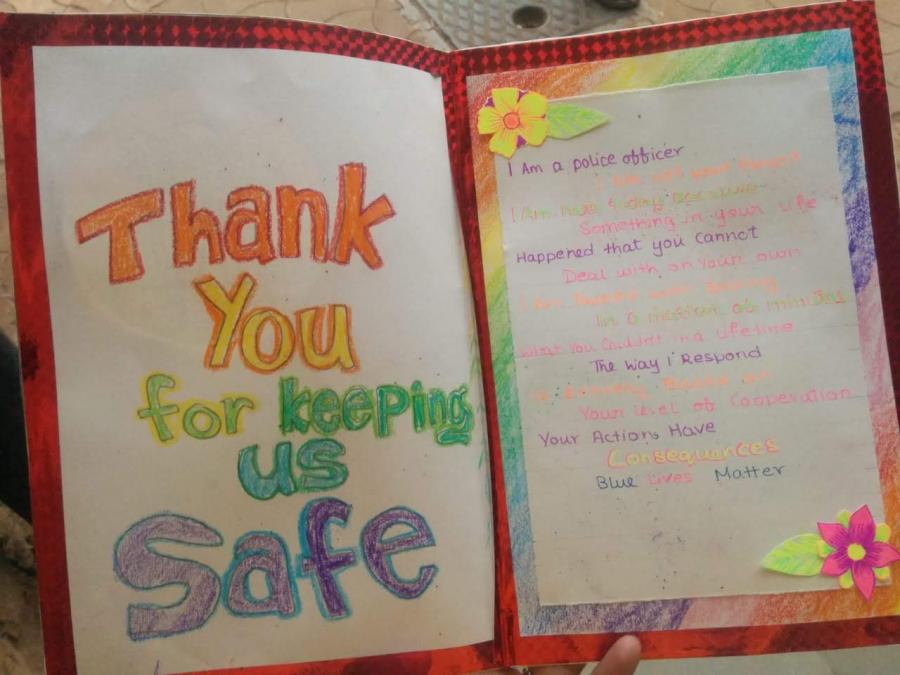 Thank
You
for keeping
us
Safe
I Am a police officer
I Am not your
I Am here
Something in your Life
Happened that you cannot
Deal with on Your own
In a matter of minutes
What You Couldn't in a Lifetime
The Way I Respond
Based on
Your level of Cooperation
Your Actions Have
Consequences
Blue Lives Matter